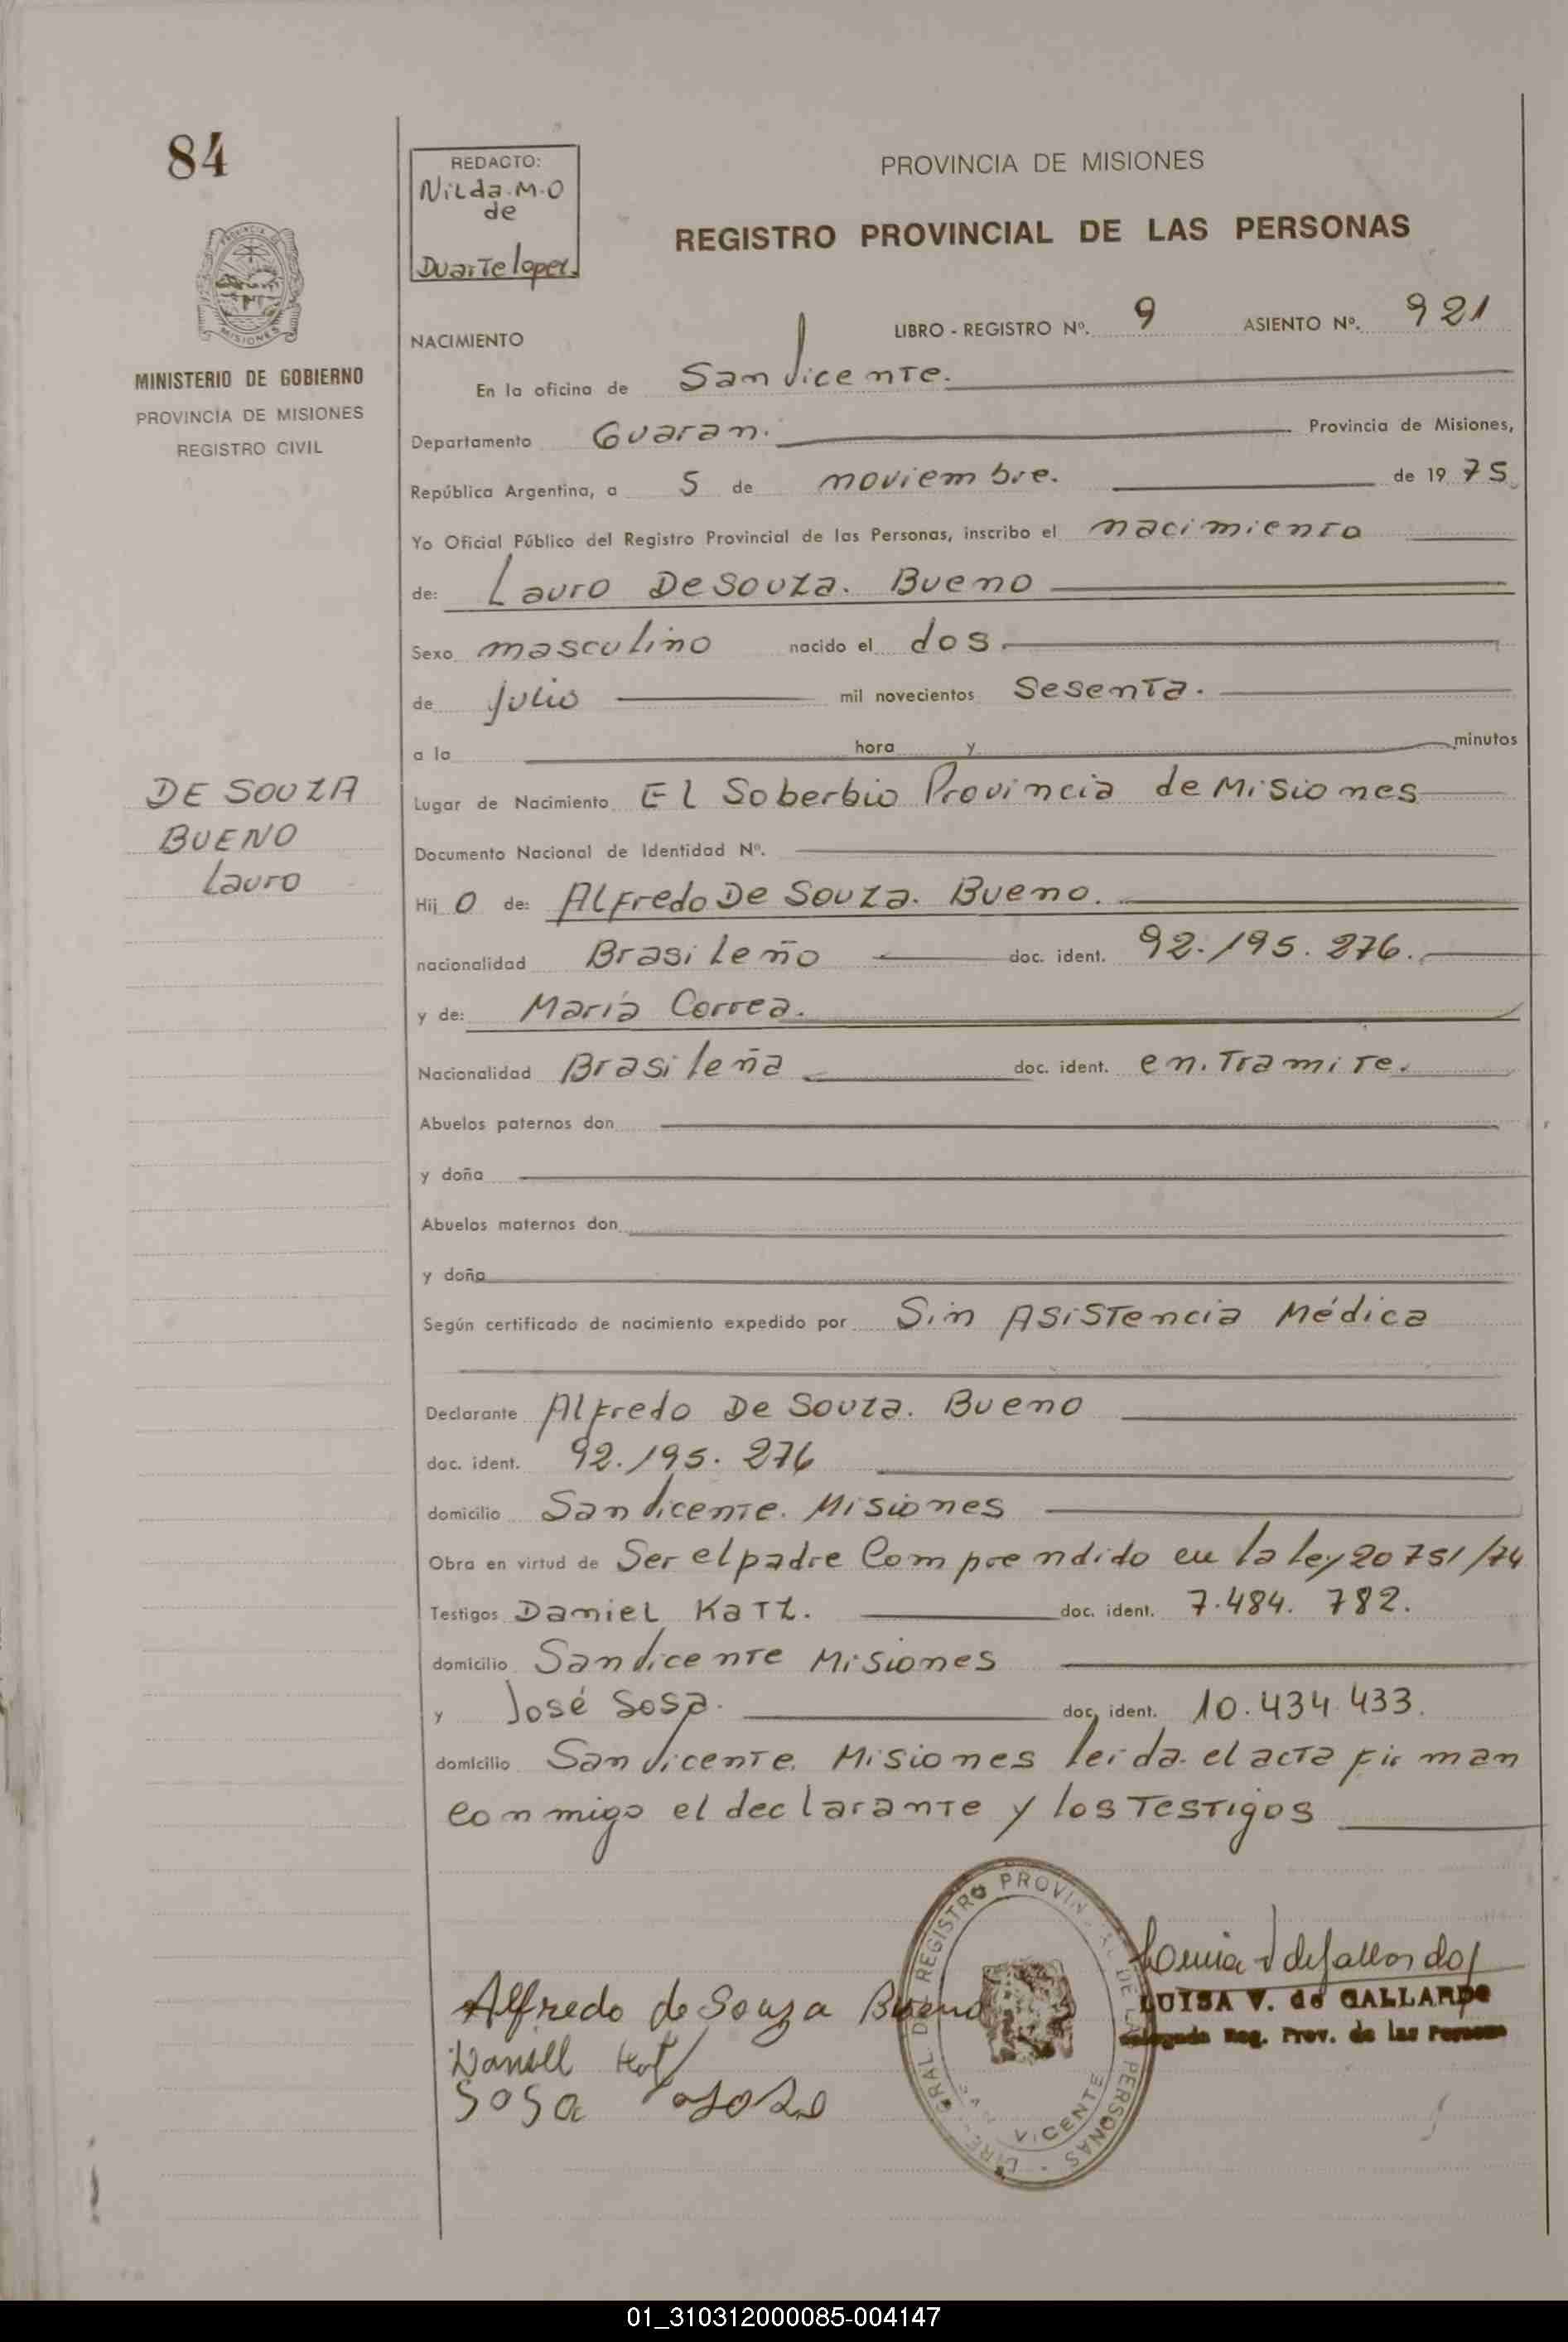 84
REDACTO:
Nilda.M.O
de
Duarte lopez.
PROVINCIA DE MISIONES
REGISTRO PROVINCIAL DE LAS PERSONAS
MINISTERIO DE GOBIERNO
PROVINCIA DE MISIONES
REGISTRO CIVIL
NACIMIENTO LIBRO - REGISTRO Nº. 9 ASIENTO Nº. 921
En la oficina de San Vicente.
Departamento Guaran. Provincia de Misiones,
República Argentina, a 5 de noviembre. de 1975
Yo Oficial Público del Registro Provincial de las Personas, inscribo el nacimiento
de: Lauro De Souza. Bueno
Sexo masculino nacido el dos
de Julio mil novecientos Sesenta.
a la hora y minutos
DE SOUZA
BUENO
Lauro
Lugar de Nacimiento El Soberbio Provincia de Misiones
Documento Nacional de Identidad Nº.
Hij o de: Alfredo De Souza. Bueno.
nacionalidad Brasileño doc. ident. 92.195.276.
y de: María Correa.
Nacionalidad Brasileña doc. ident. en. Tramite.
Abuelos paternos don
y doña
Abuelos maternos don
y doña
Según certificado de nacimiento expedido por Sin Asistencia Médica
Declarante Alfredo De Souza. Bueno
doc. ident. 92.195.276
domicilio San Vicente. Misiones
Obra en virtud de Ser el padre Comprendido en la ley 20751/74
Testigos Daniel Katz. doc. ident. 7.484.782.
domicilio San Vicente Misiones
y José Sosa. doc. ident. 10.434.433.
domicilio San Vicente. Misiones leida. el acta firman
conmigo el declarante y los Testigos
Alfredo de Souza Bueno
LUISA V. de GALLARDO
Delegada Reg. Prov. de las Personas
Sosa Jose
REGISTRO PROVINCIAL DE LAS PERSONAS
SAN VICENTE
01_310312000085-004147